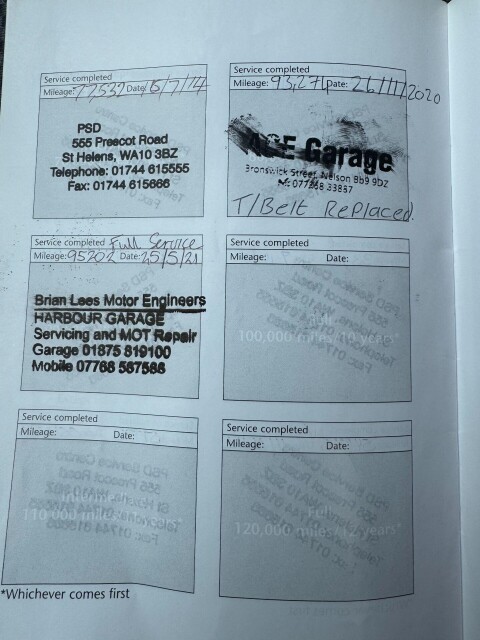 Service completed
Mileage: 77,532 Date: 15/7/14
PSD
555 Prescot Road
St Helens, WA10 3BZ
Telephone: 01744 615555
Fax: 01744 615666
Service completed
Mileage: 93,271 Date: 26/11/2020
Garage
Bronswick Street, Nelson BB9 9DZ
T/Belt Replaced.
Service completed Full Service
Mileage: 95202 Date: 25/5/21
Brian Lees Motor Engineers
HARBOUR GARAGE
Servicing and MOT Repair
Garage 01875 819100
Mobile 07768 567566
Service completed
Mileage: Date:
Full
100,000 miles/10 years*
Service completed
Mileage: Date:
110,000
Service completed
Mileage: Date:
Fully
120,000 miles/12 years*
*Whichever comes first